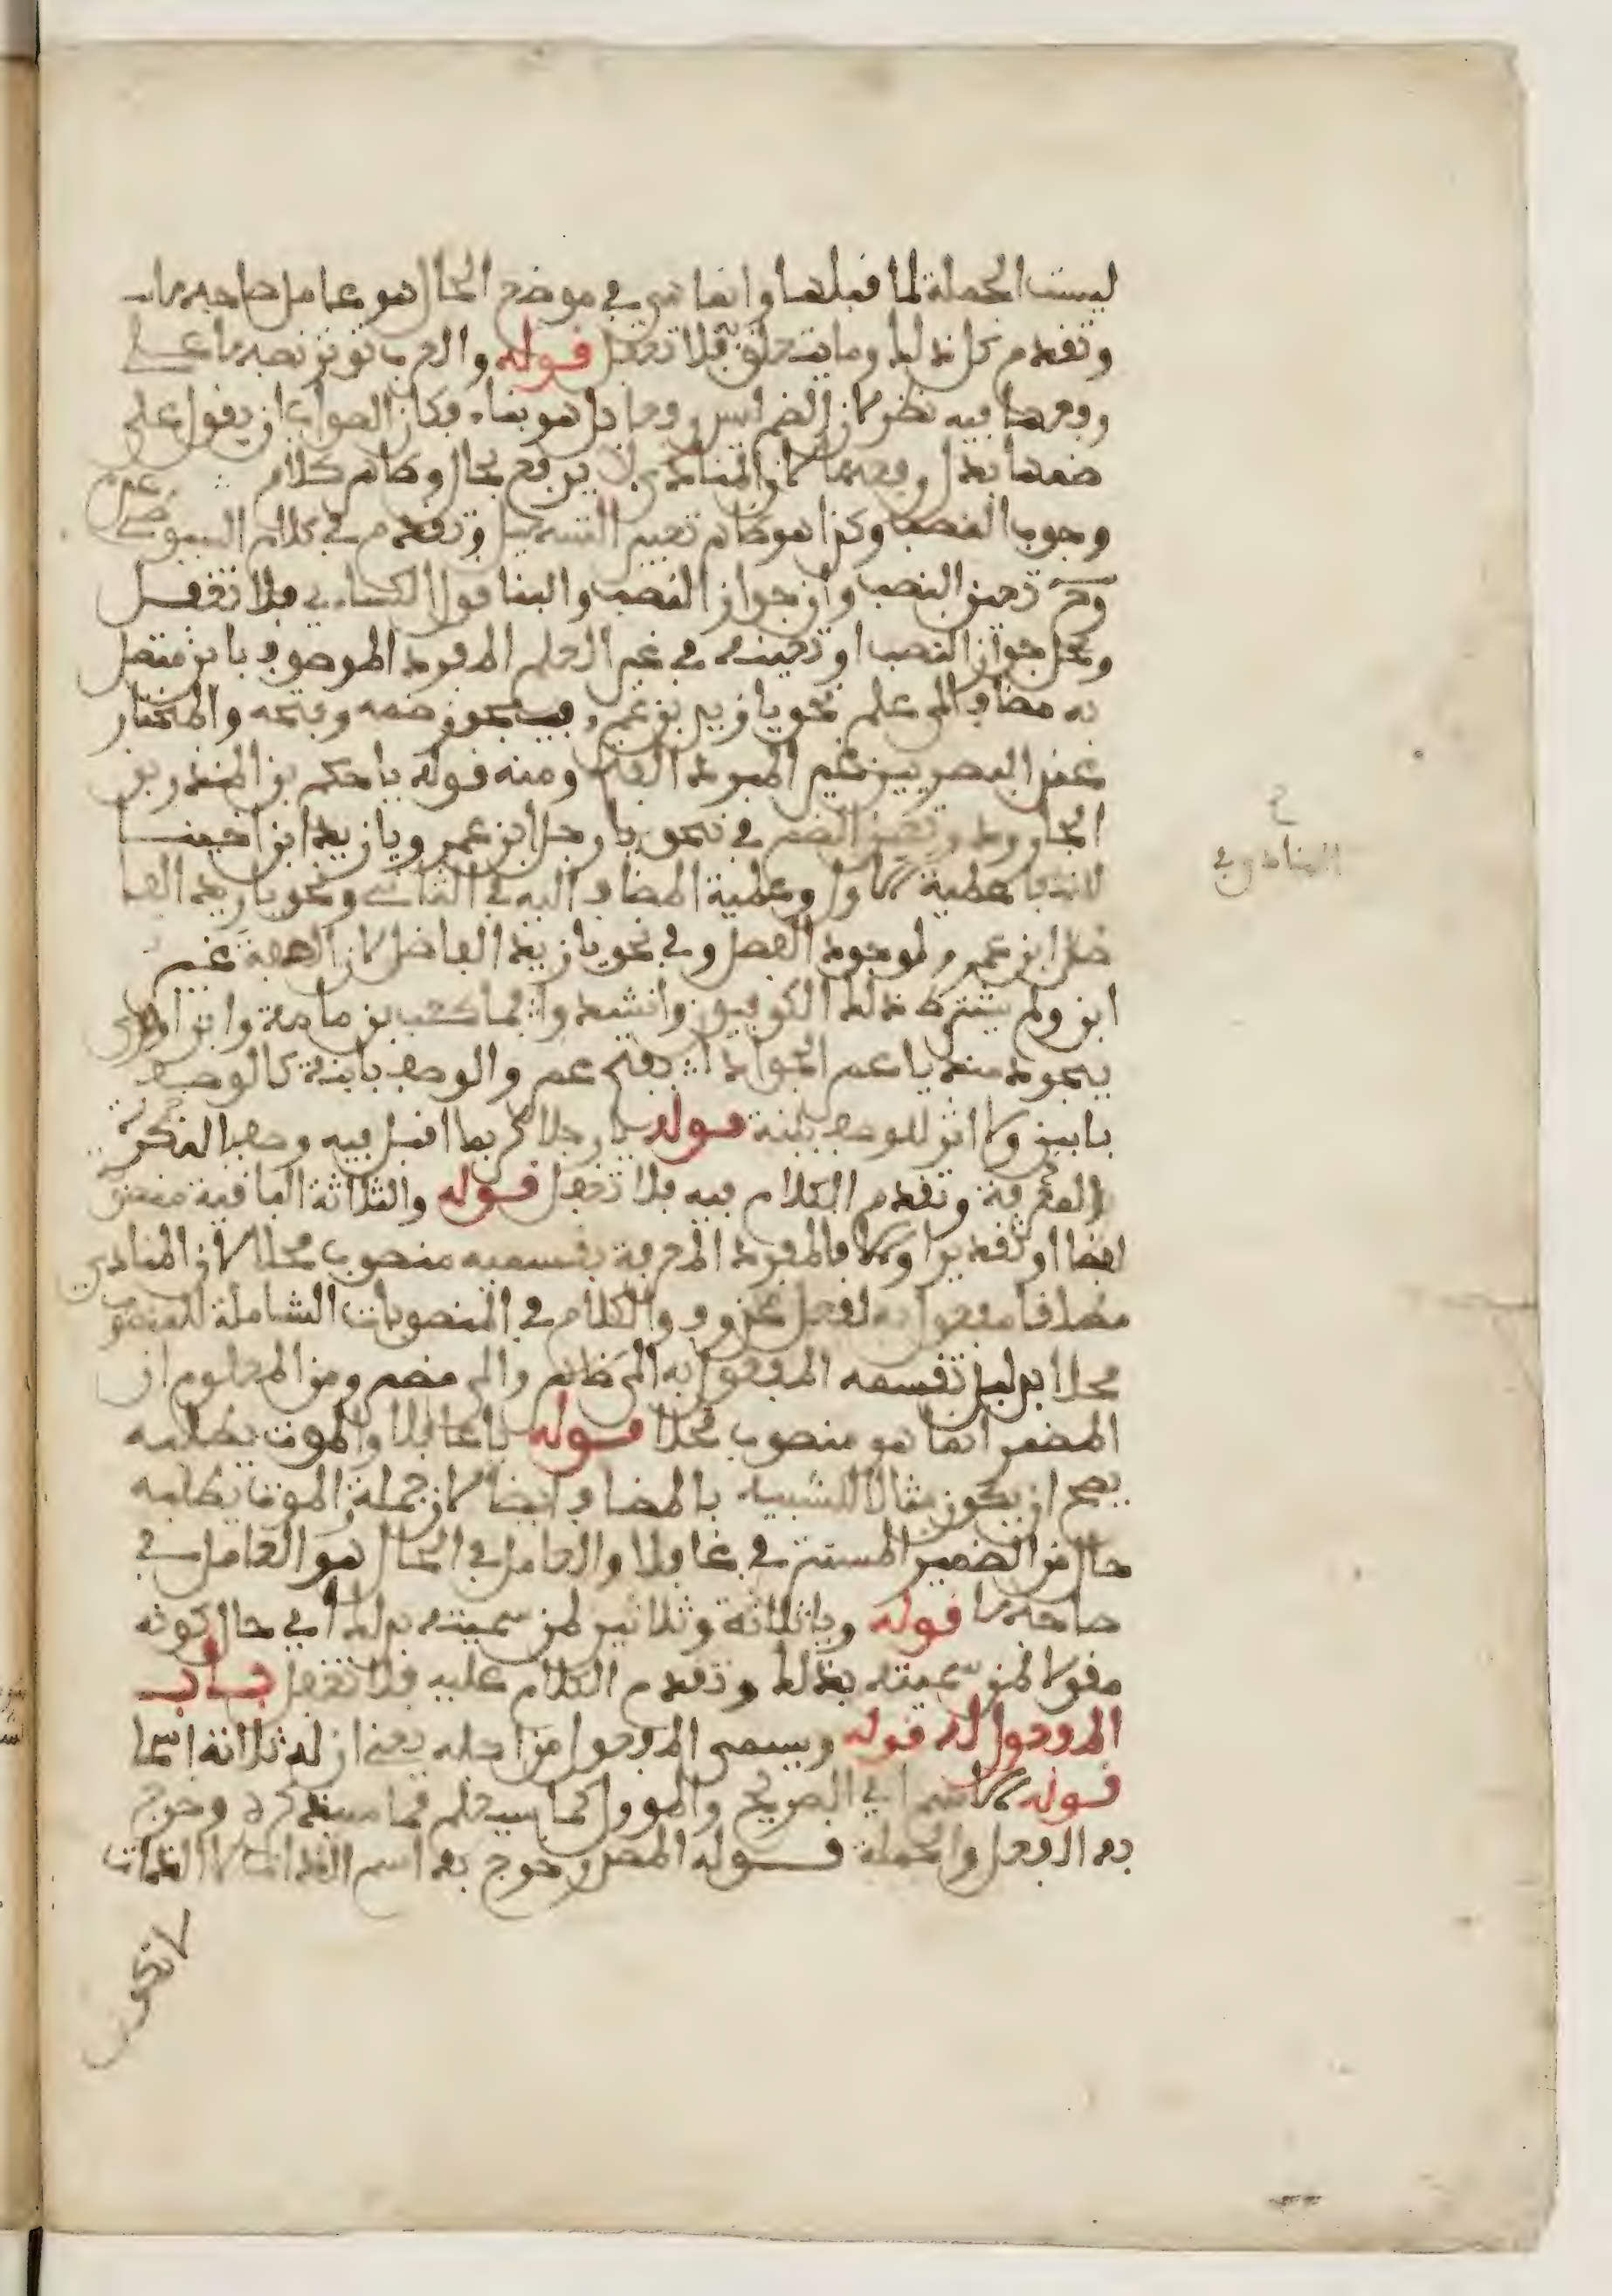 ليست الجملة لما قبلها وانما هي في موضع الحال هو عامل صاحبها
وتقدم كل ذلك وما يتعلق به فلا تغفل قوله والعرب توثر نصبها على
رفعها فيه نظر لان الضم ليس رفعا بل هو بناء فكان الصواب ان يقول على
ضمها بدل رفعها لان المنادى لا يرفع بحال وظاهر كلام
وجوب النصب وكذا هو ظاهر تعبير التسهيل وتقدم في كلام السيوطي
وح تعين النصب وان جواز النصب والبنا قول الكسائي فلا تغفل
ومحل جواز النصب او تعينه في غير العلم المفرد الموصوف بابن متصل
به مضاف الى علم نحو يا زيد بن عمرو فيجوز ضمه وفتحه والمختار
عند البصريين غير المبرد الفتح ومنه قوله يا حكم بن المنذر بن
الجارود وتعين الضم في نحو يا رجل ابن عمرو ويا زيد ابن اخينا
لانتفا علمية الاول وعلمية المضاف اليه في الثاني ونحو يا زيد الفا
ضل ابن عمرو لوجود الفصل وفي نحو يا زيد الفاضل لان الصفة غير
ابن ولم يشترط ذلك الكوفيون وانشدوا فما كعب بن مامة وابن اروى
باجود منك يا عمر الجوادا بفتح عمر والوصف بابنة كالوصف
بابن ولا اثر للوصف ببنت قوله يا رجلا كريما اقبل فيه وصف النكرة
بالمعرفة وتقدم الكلام فيه فلا تغفل قوله والثلاثة الباقية منصوبة
لفظا او تقديرا اولا فالمفرد المعرفة بقسميه منصوب محلا لان المنادى
مطلقا مفعول به لفعل محذوف والكلام في المنصوبات الشاملة للمنصوب
محلا بدليل تقسيمه المفعول به الى ظاهر والى مضمر ومن المعلوم ان
المضمر انما هو منصوب محلا قوله يا غافلا والموت يطلبه
يصح ان يكون مثالا للشبيه بالمضاف ايضا لان جملة والموت يطلبه
حال من الضمير المستتر في غافلا والعامل في الحال هو العامل في
صاحبها قوله ويا ثلاثة وثلاثين لمن سميته بذلك اي حال كونه
مقولا لمن سميته بذلك وتقدم الكلام عليه فلا تغفل باب
المفعول له قوله ويسمى المفعول من اجله يعني ان له ثلاثة اسما
قوله الاسم اي الصريح والموول كما سيعلم مما سنذكره وخرج
به الفعل والجملة قوله المصدر خرج به اسم الذات لان الذات
لا تكون
ح
المنادى في